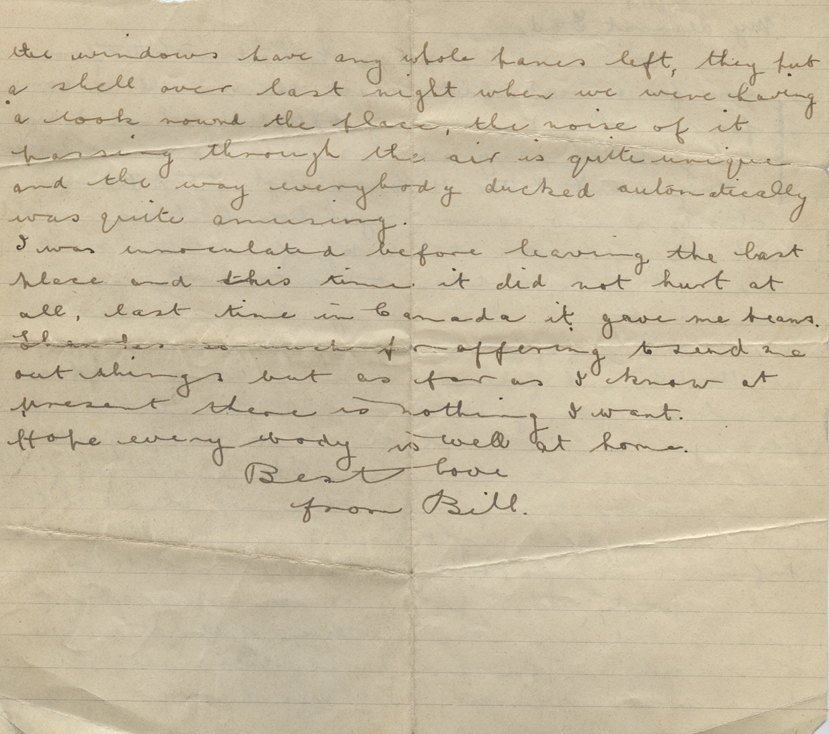 the windows have any whole panes left, they put
a shell over last night when we were having
a look round the place, the noise of it
passing through the air is quite unique
and the way everybody ducked automatically
was quite amusing.
I was innoculated before leaving the last
place and this time it did not hurt at
all, last time in Canada it gave me beans.
Thanks so much for offering to send me
out things but as far as I know at
present there is nothing I want.
Hope every body is well at home.
Best love
from Bill.